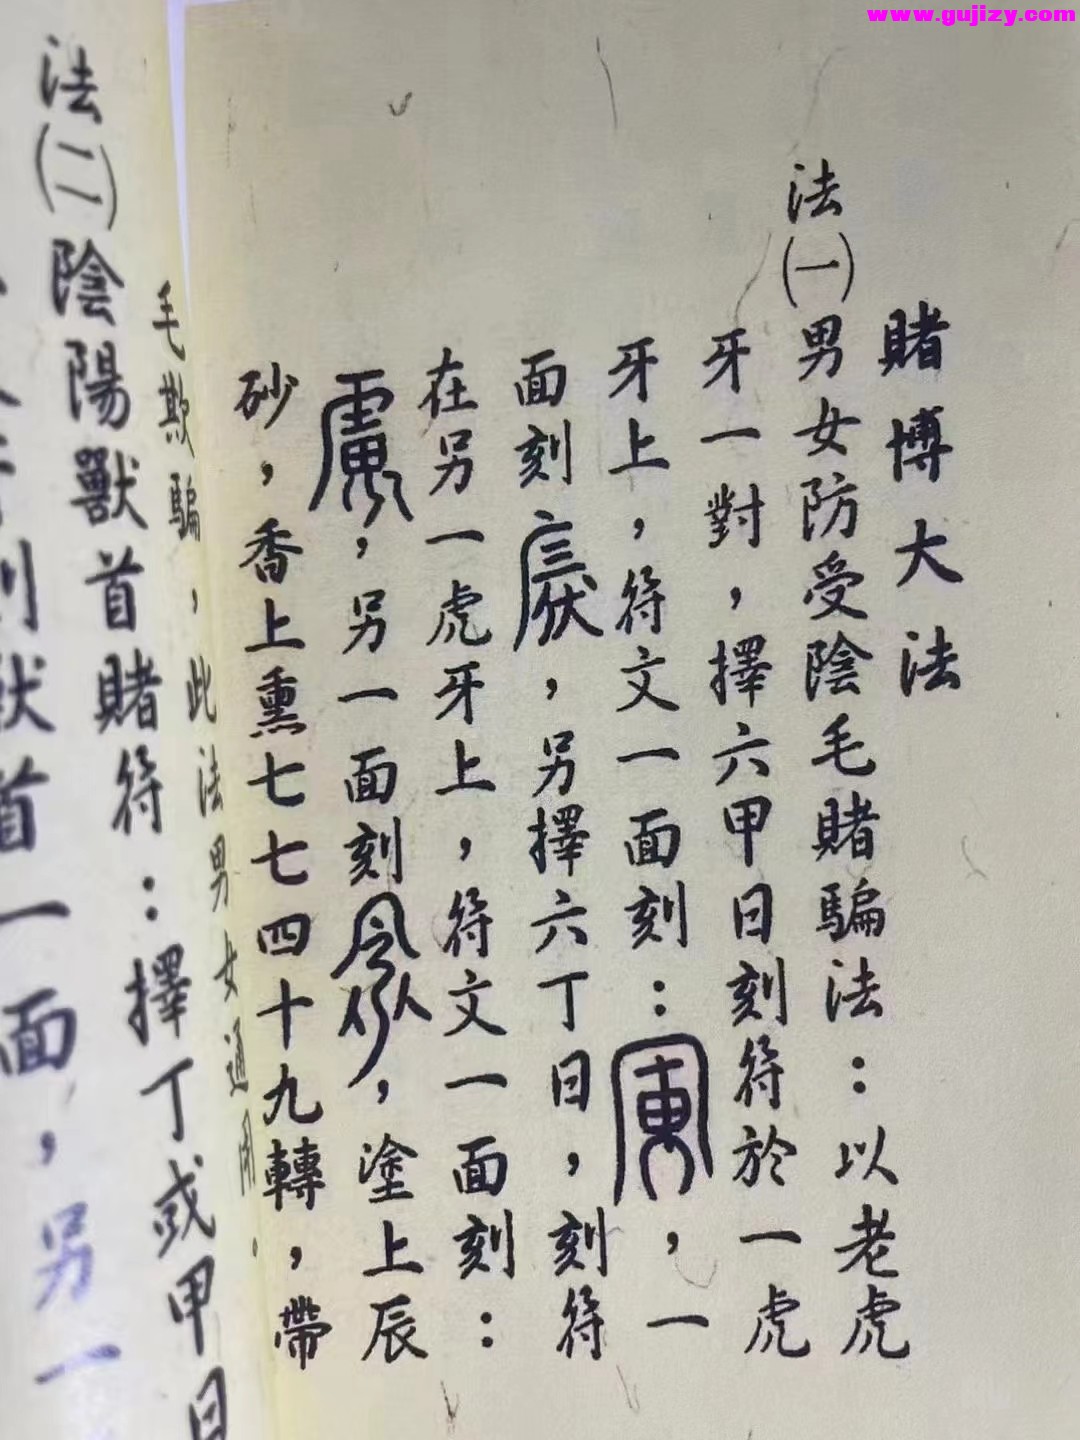 www.gujizy.com
賭博大法
法(一)男女防受陰毛賭騙法：以老虎
牙一對，擇六甲日刻符於一虎
牙上，符文一面刻：，一
面刻，另擇六丁日，刻符
在另一虎牙上，符文一面刻：
，另一面刻，塗上辰
砂，香上熏七七四十九轉，帶
毛欺騙，此法男女通用．
法(二)陰陽獸首賭符：擇丁或甲日
首一面，另一